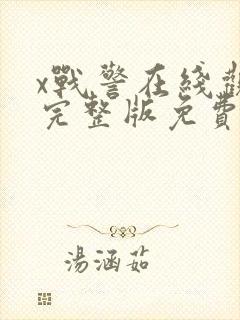 x戰警在綫觀
完整版免費
湯涵茹